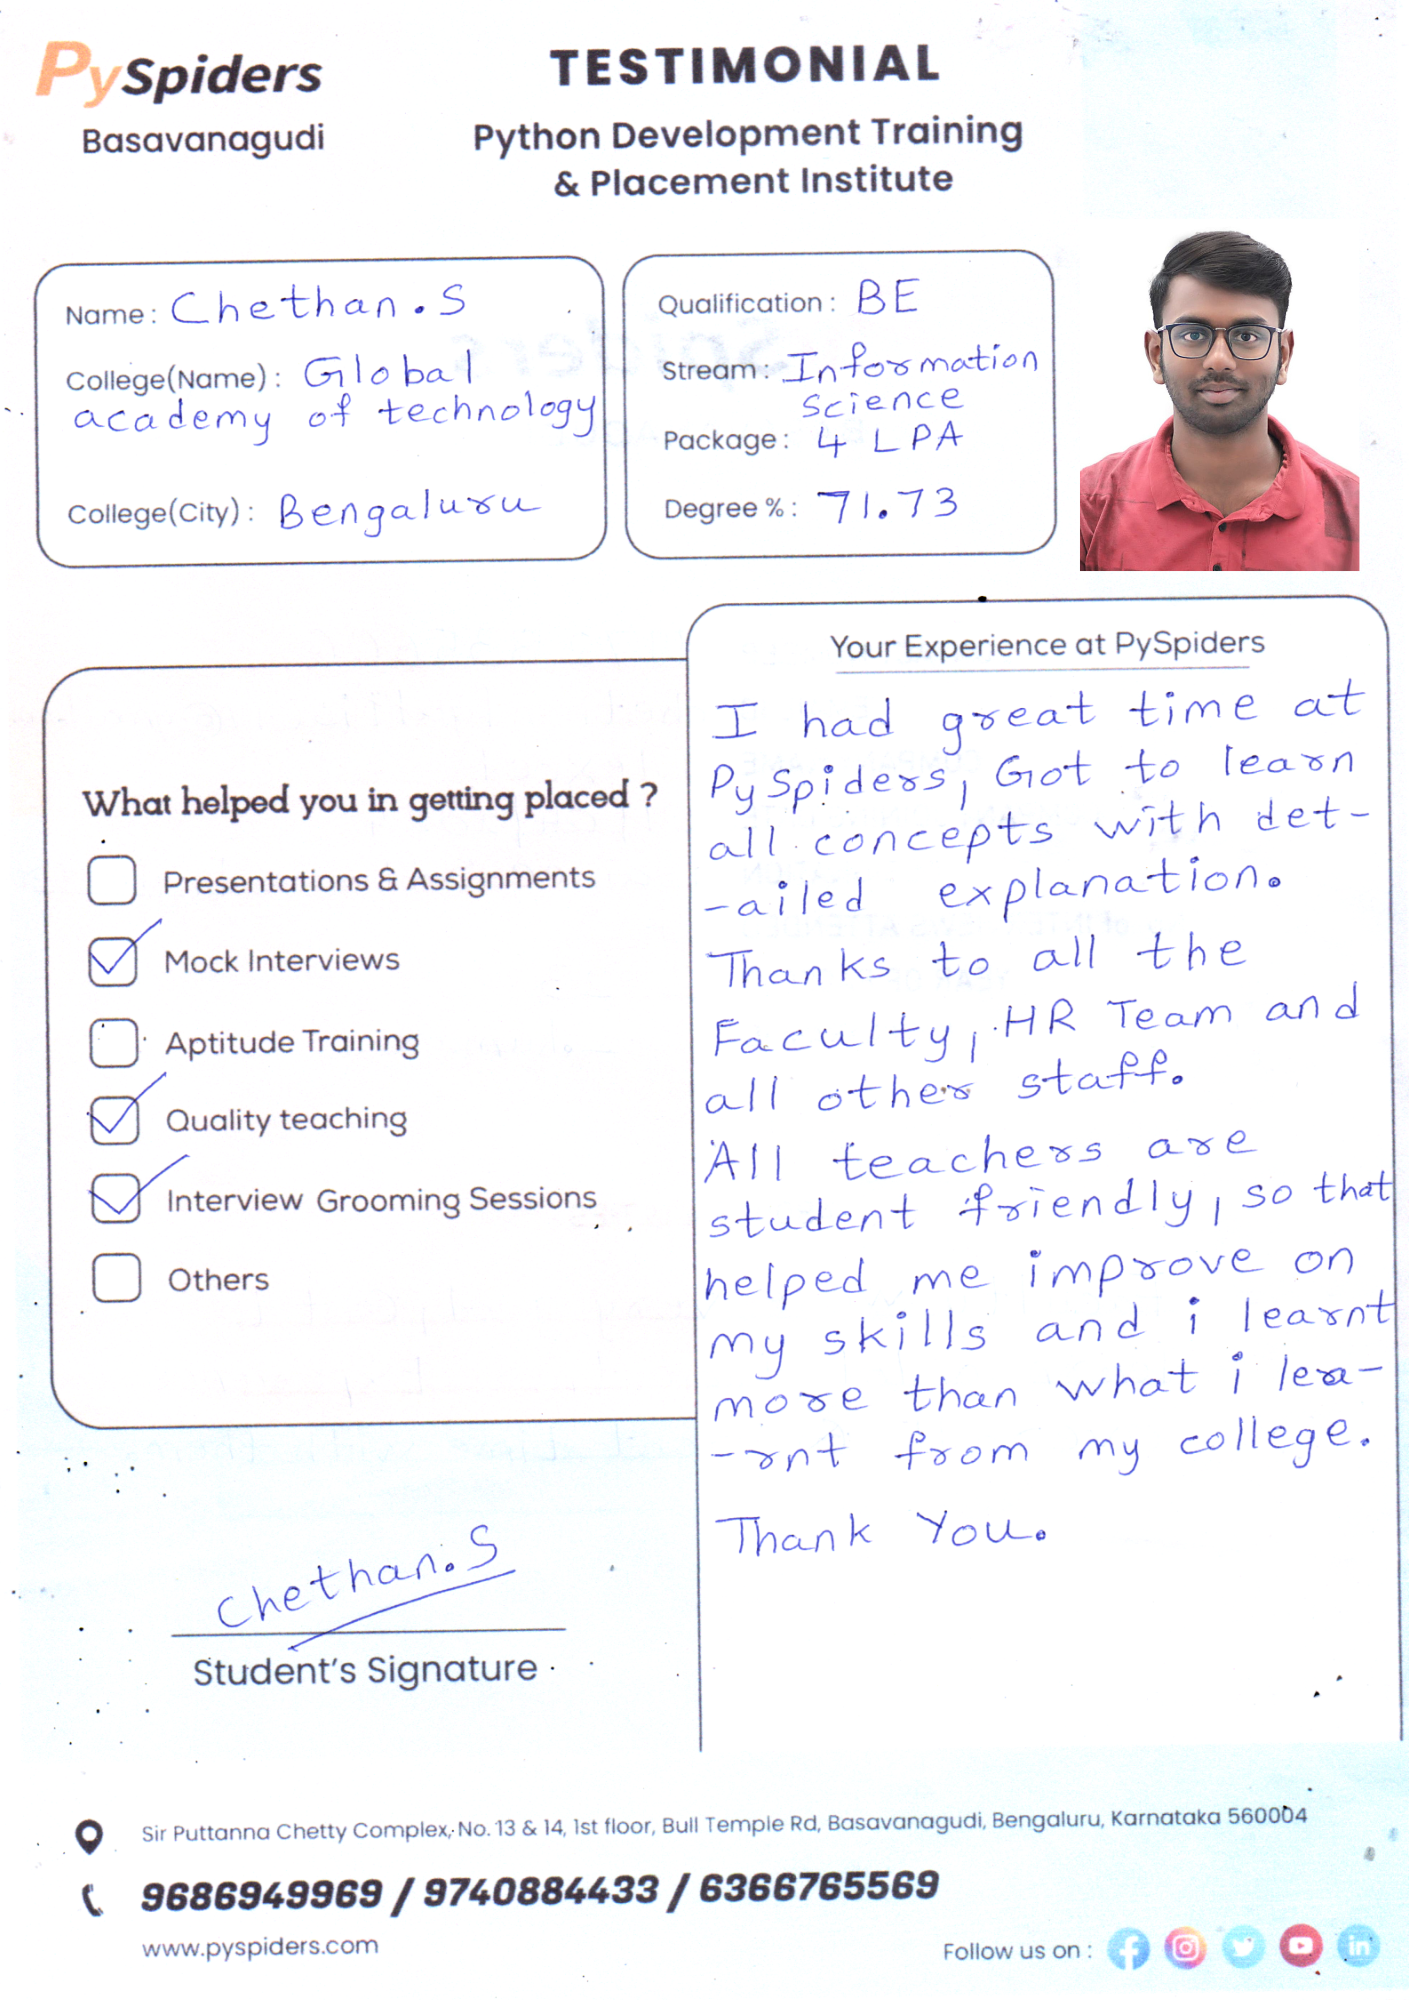 PySpiders
Basavanagudi
TESTIMONIAL
Python Development Training
& Placement Institute
Name : Chethan.S
College(Name) : Global
academy of technology
College(City) : Bengaluru
Qualification : BE
Stream : Information
Science
Package : 4 LPA
Degree % : 71.73
What helped you in getting placed ?
Presentations & Assignments
Mock Interviews
Aptitude Training
Quality teaching
Interview Grooming Sessions
Others
Chethan.S
Student's Signature
Your Experience at PySpiders
I had great time at
PySpiders, Got to learn
all concepts with det-
-ailed explanation.
Thanks to all the
Faculty, HR Team and
all other staff.
All teachers are
student friendly, so that
helped me improve on
my skills and i learnt
more than what i lea-
-rnt from my college.
Thank You.
Sir Puttanna Chetty Complex, No. 13 & 14, 1st floor, Bull Temple Rd, Basavanagudi, Bengaluru, Karnataka 560004
9686949969 / 9740884433 / 6366765569
www.pyspiders.com
Follow us on :